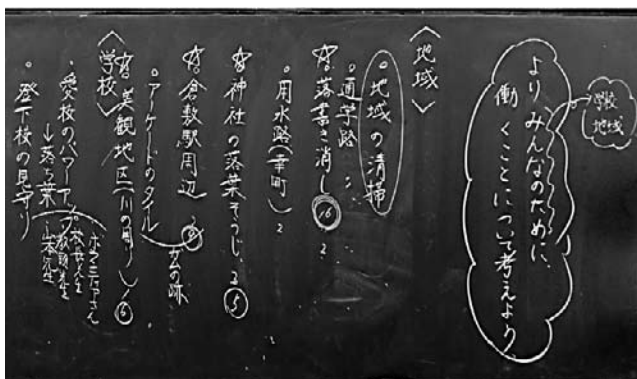 学校
地域
より、みんなのために、
働くことについて考えよう
〈地域〉
。地域の清掃
。通学路
☆。落書き消し ⑯ 2
。用水路(幸町) 2
☆。神社の落葉そうじ、3 ⑤
☆。倉敷駅周辺
。アーケードのタイル
ガムの跡
☆。美観地区(川の周り) ⑥
〈学校〉
。愛校のパワーアップ
→落ち葉
教頭先生
。登下校の見守り